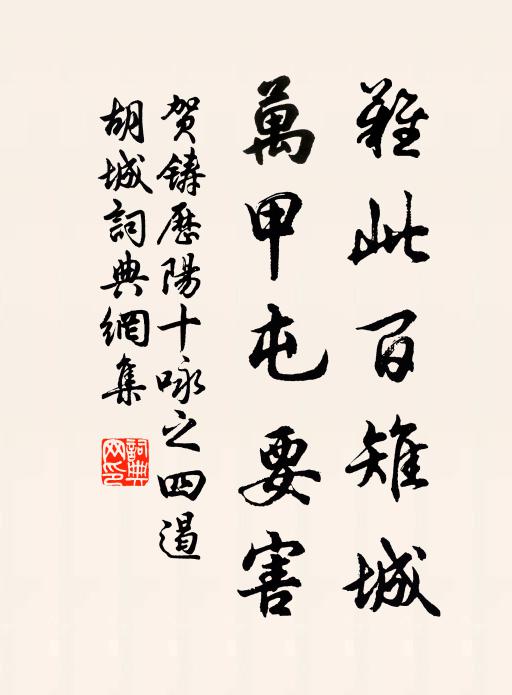 難此百雉城
萬甲屯要害
賀鑄歷陽十咏之四遏
胡城詞典網集
詞典网印